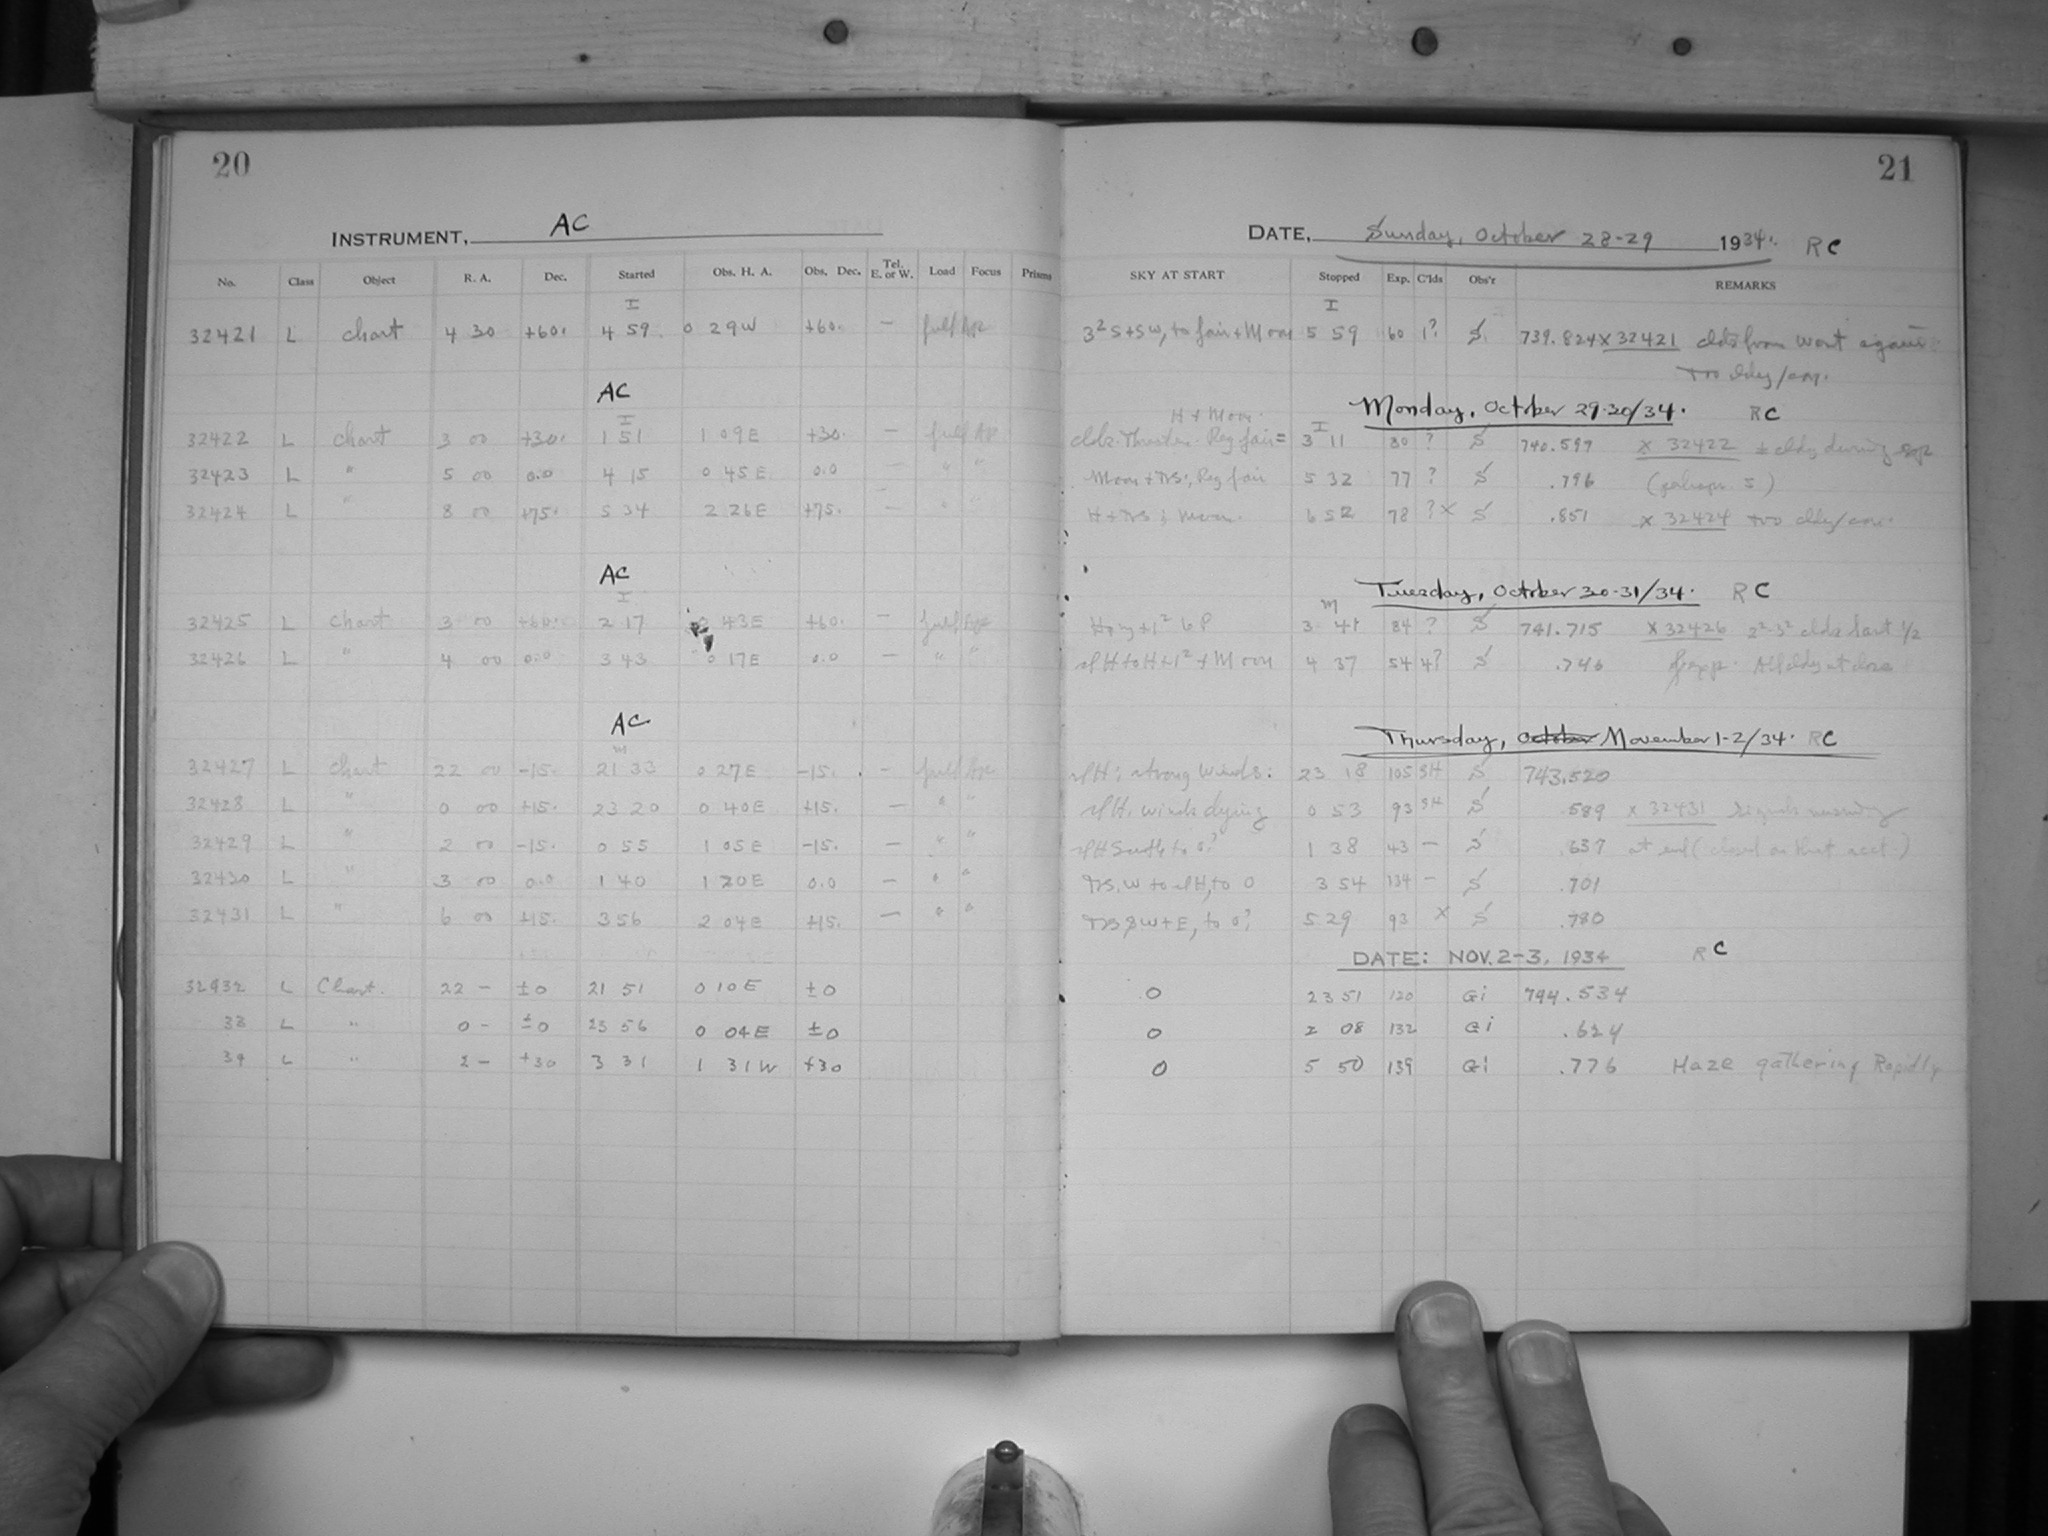 20
INSTRUMENT, AC
No. Class Object R. A. Dec. Started Obs. H. A. Obs. Dec. Tel. E. or W. Load Focus Prisms
I
32421 L chart 4 30 +60. 4 59. 0 29W +60. — full
AC
I
32422 L chart 3 00 +30. 1 51 1 09E +30. — full
32423 L " 5 00 0.0 4 15 0 45E 0.0 — " "
32424 L " 8 00 +75. 5 34 2 26E +75. — " "
AC
I
32425 L chart 3 00 +60. 2 17 43E +60. — full
32426 L " 4 00 0.0 3 43 0 17E 0.0 — " "
AC
m
32427 L chart 22 00 -15. 21 33 0 27E -15. - full
32428 L " 0 00 +15. 23 20 0 40E +15. — " "
32429 L " 2 00 -15. 0 55 1 05E -15. — " "
32430 L " 3 00 0.0 1 40 1 20E 0.0 — " "
32431 L " 6 00 +15. 3 56 2 04E +15. — " "
32432 L Chart. 22 - ±0 21 51 0 10E ±0
33 L " 0 - ±0 23 56 0 04E ±0
34 L " 2 - +30 3 31 1 31W +30
21
DATE, Sunday, October 28-29 1934. RC
SKY AT START Stopped Exp. C'lds Obs'r REMARKS
I
3² S+SW, to fair + Moon 5 59 60 1? S. 739.824 x 32421 clds from West again
too cldy/
Monday, October 29-30/34. RC
H + Moon.
I
Reg fair = 3 11 80 ? S 740.597 x 32422 ± cldy during exp
Moon + Reg fair 5 32 77 ? S .796 (perhaps 5)
Moon. 6 52 78 ? x S .851 x 32424 too cldy/
Tuesday, October 30-31/34. RC
m
3 41 84 ? S 741.715 x 32426 2²-3² clds last 1/2
+ Moon 4 37 54 4? S .746 exp. All cldy at close
Thursday, October November 1-2/34. RC
strong winds: 23 18 105 SH S 743.520
winds dying 0 53 93 SH S .589 x 32431
to 0? 1 38 43 — S .637 at end (closed on that acct.)
to 0 3 54 134 - S .701
W+E, to 0? 5 29 93 x S .780
DATE: NOV. 2-3, 1934 RC
0 23 51 120 Gi 794.534
0 2 08 132 Gi .624
0 5 50 139 Gi .776 Haze gathering Rapidly